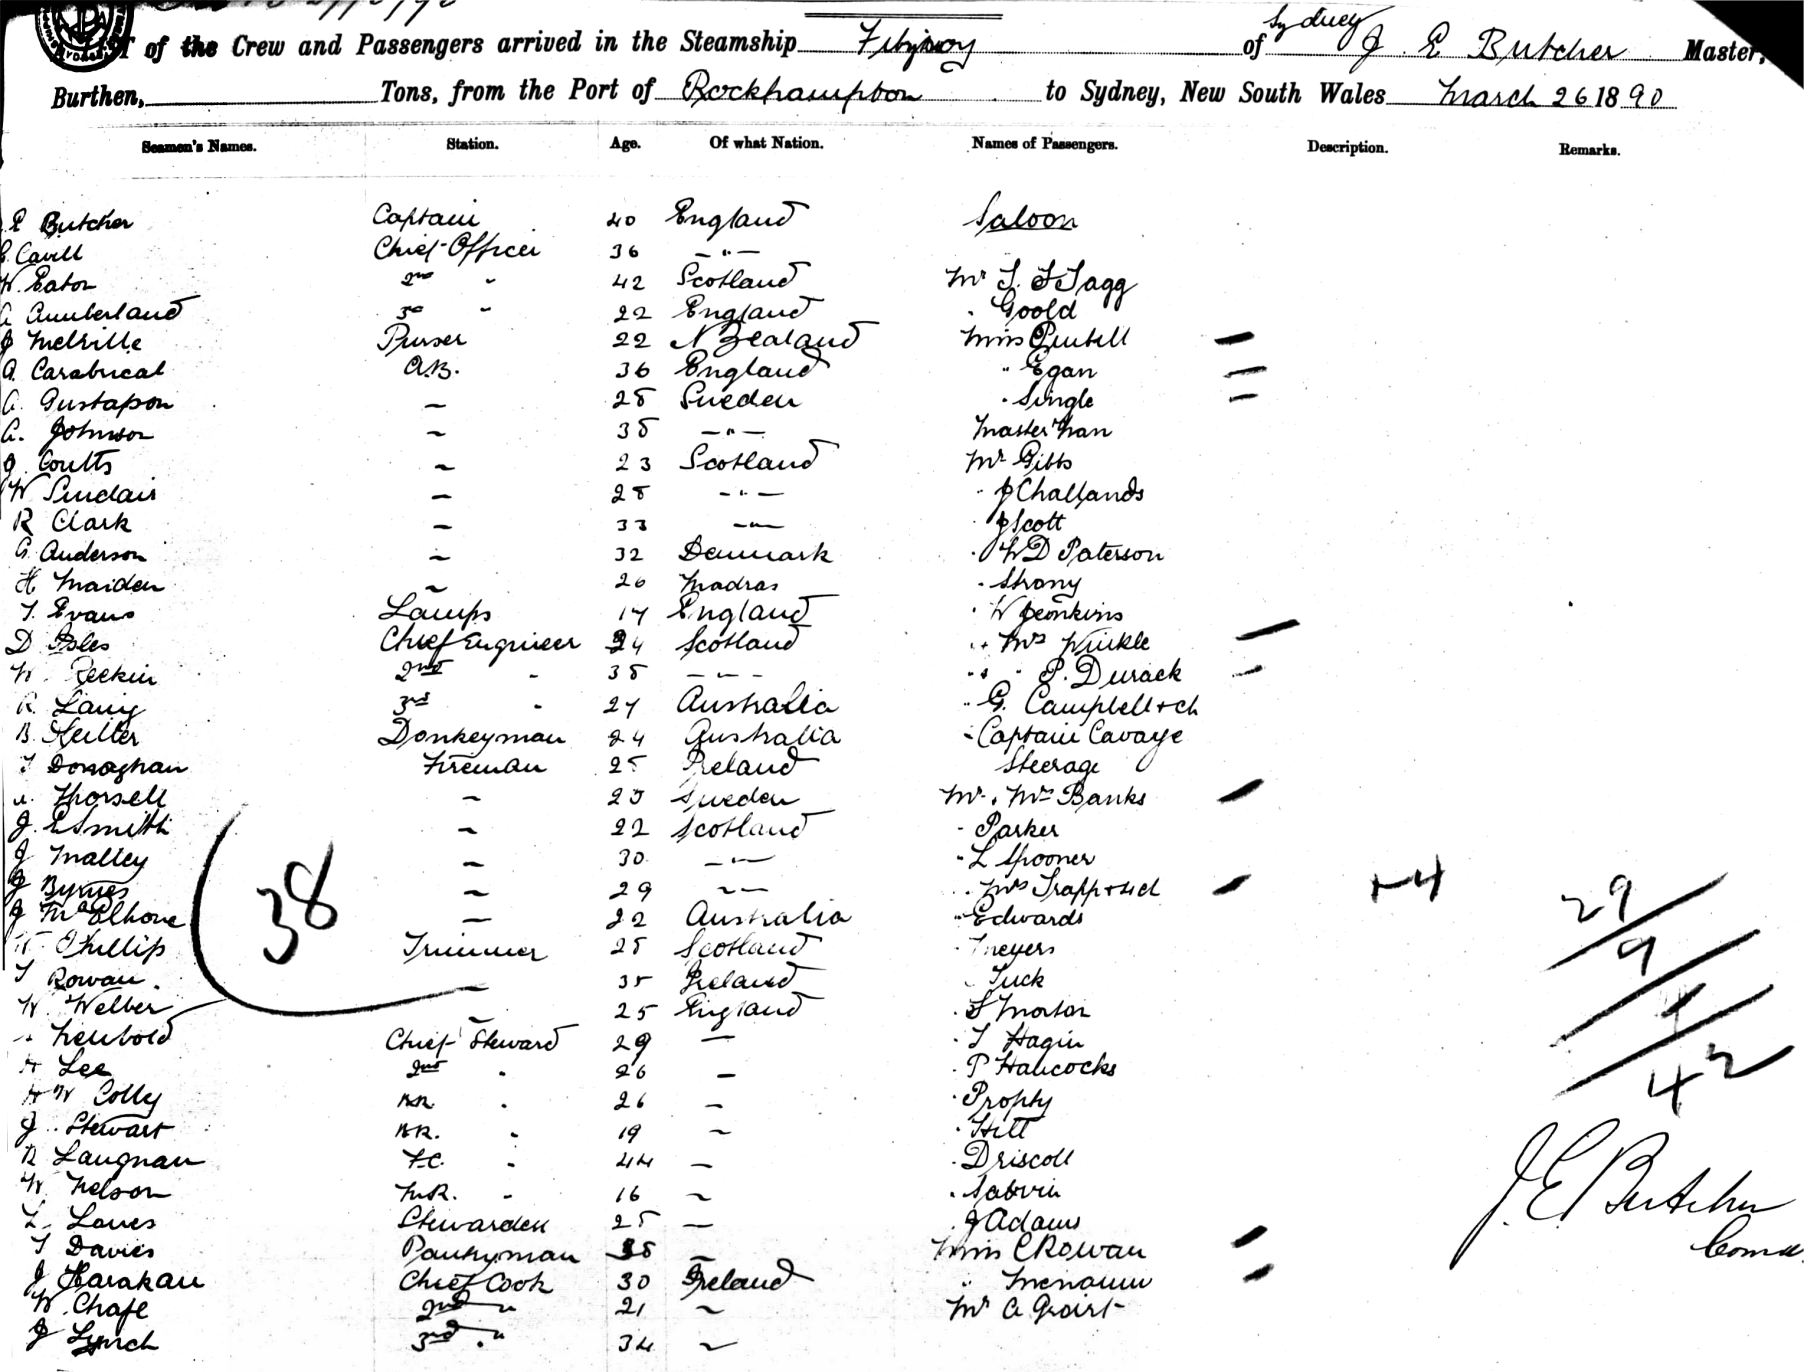 of the Crew and Passengers arrived in the Steamship Fitzroy of Sydney J E Butcher Master,
Burthen, Tons, from the Port of Rockhampton to Sydney, New South Wales March 26 1890
Seamen's Names. Station. Age. Of what Nation. Names of Passengers. Description. Remarks.
E Butcher Captain 40 England Saloon
Cavill Chief Officer 36 - " -
W. Eaton 2nd " 42 Scotland Mr T. F Tagg
A Cumberland 3rd " 22 England " Goold
J Melville Purser 22 N Zealand Miss
A. A.B. 36 England " Egan
A. Gustafson — 25 Sweden " Single
A. Johnson — 35 - " - Master Nan
J. Coutts — 23 Scotland Mr Gibbs
W Sinclair — 25 - " - " J Challands
R Clark — 33 - " - " J Scott
A. Anderson — 32 Denmark " W D Paterson
H Maiden — 26 Madras " Strong
T. Evans Lamps 17 England " W Jeonkins
D Isles Chief Engineer 34 Scotland " Mrs Winkle
W. 2nd " 35 - " - " " P. Durack
R. Laing 3rd " 27 Australia " G. Campbell + ch
B. Donkeyman 24 Australia " Captain Cavaye
T Donaghan Fireman 25 Ireland Steerage
Thorsell — 25 Sweden Mr. & Mrs Banks
J. E Smith — 22 Scotland " Parker
J Malley — 30 - " - " L Spooner
J Byrnes — 29 - " - " Mrs Trapp + 4 ch +4 29
J McElhone — 22 Australia " Edwards
38
W. Phillip Trimmer 25 Scotland " Meyers 9
T Rowan. — 35 Ireland " Tuck
W. Welber — 25 England " S Morton 4
Newbold Chief Steward 29 — " T Hagin
Lee 2nd " 26 — " P Hancocks 42
W Colley B.R. " 26 — " Prophy
J. Stewart B.R. " 19 — " Hill
R Laugnan F.C. " 44 — " Driscoll
W. Nelson M.R. " 16 — " Salvin
L. Lanes Stewardess 25 — " J Adams J. E Butcher
T Davies Pantryman 38 — Miss C Rowan Comd
J. Harakan Chief Cook 30 Ireland "
W. Chafe 2nd " 21 — Mr A
J Lynch 3rd " 34 —